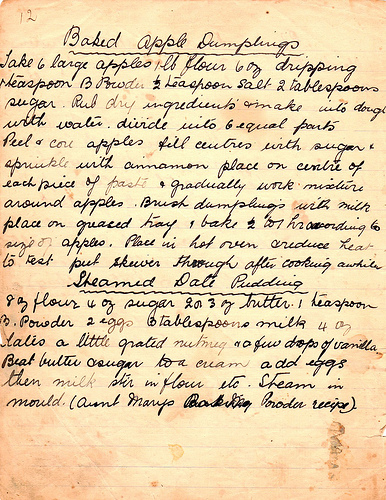 12
Baked Apple Dumplings
Take 6 large apples 1 lb flour 6 oz dripping
1 teaspoon B Powder ½ teaspoon salt 2 tablespoons
sugar. Rub dry ingredients & make into dough
with water. divide into 6 equal parts
Peel & core apples fill centres with sugar &
sprinkle with cinnamon place on centre of
each piece of paste & gradually work mixture
around apples. Brush dumplings with milk
place on greased tray & bake ½ to 1 hr according to
size of apples. Place in hot oven & reduce heat
to test put skewer through after cooking awhile
Steamed Date Pudding
8 oz flour 4 oz sugar 2 or 3 oz butter. 1 teaspoon
B. Powder 2 eggs 3 tablespoons milk 4 oz
dates a little grated nutmeg & a few drops of vanilla
Beat butter & sugar to a cream add eggs
then milk stir in flour etc. Steam in
mould. (Aunt Marys Powder recipe).